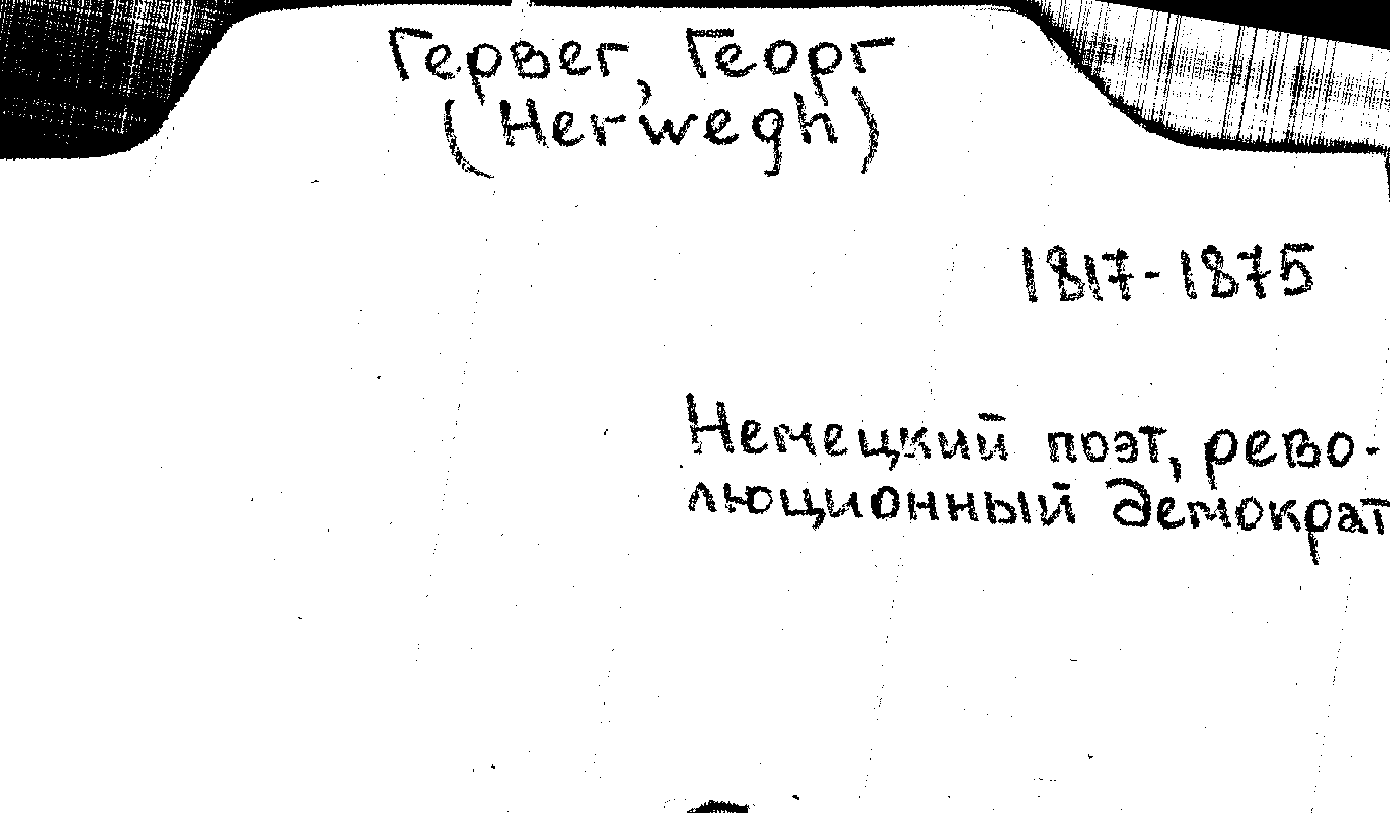 Гервег, Георг
(Herwegh)
1817-1875
Немецкий поэт, рево-
люционный демократ